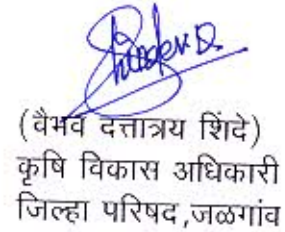 (वैभव दत्तात्रय शिंदे)
कृषि विकास अधिकारी
जिल्हा परिषद,जळगांव